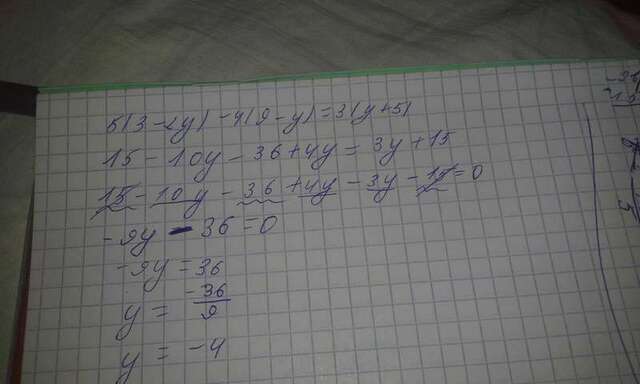 5(3-2y)-4(9-y)=3(y+5)
15-10y-36+4y=3y+15
15-10y-36+4y-3y-15=0
-9y-36=0
-9y=36
y=-36/9
y=-4